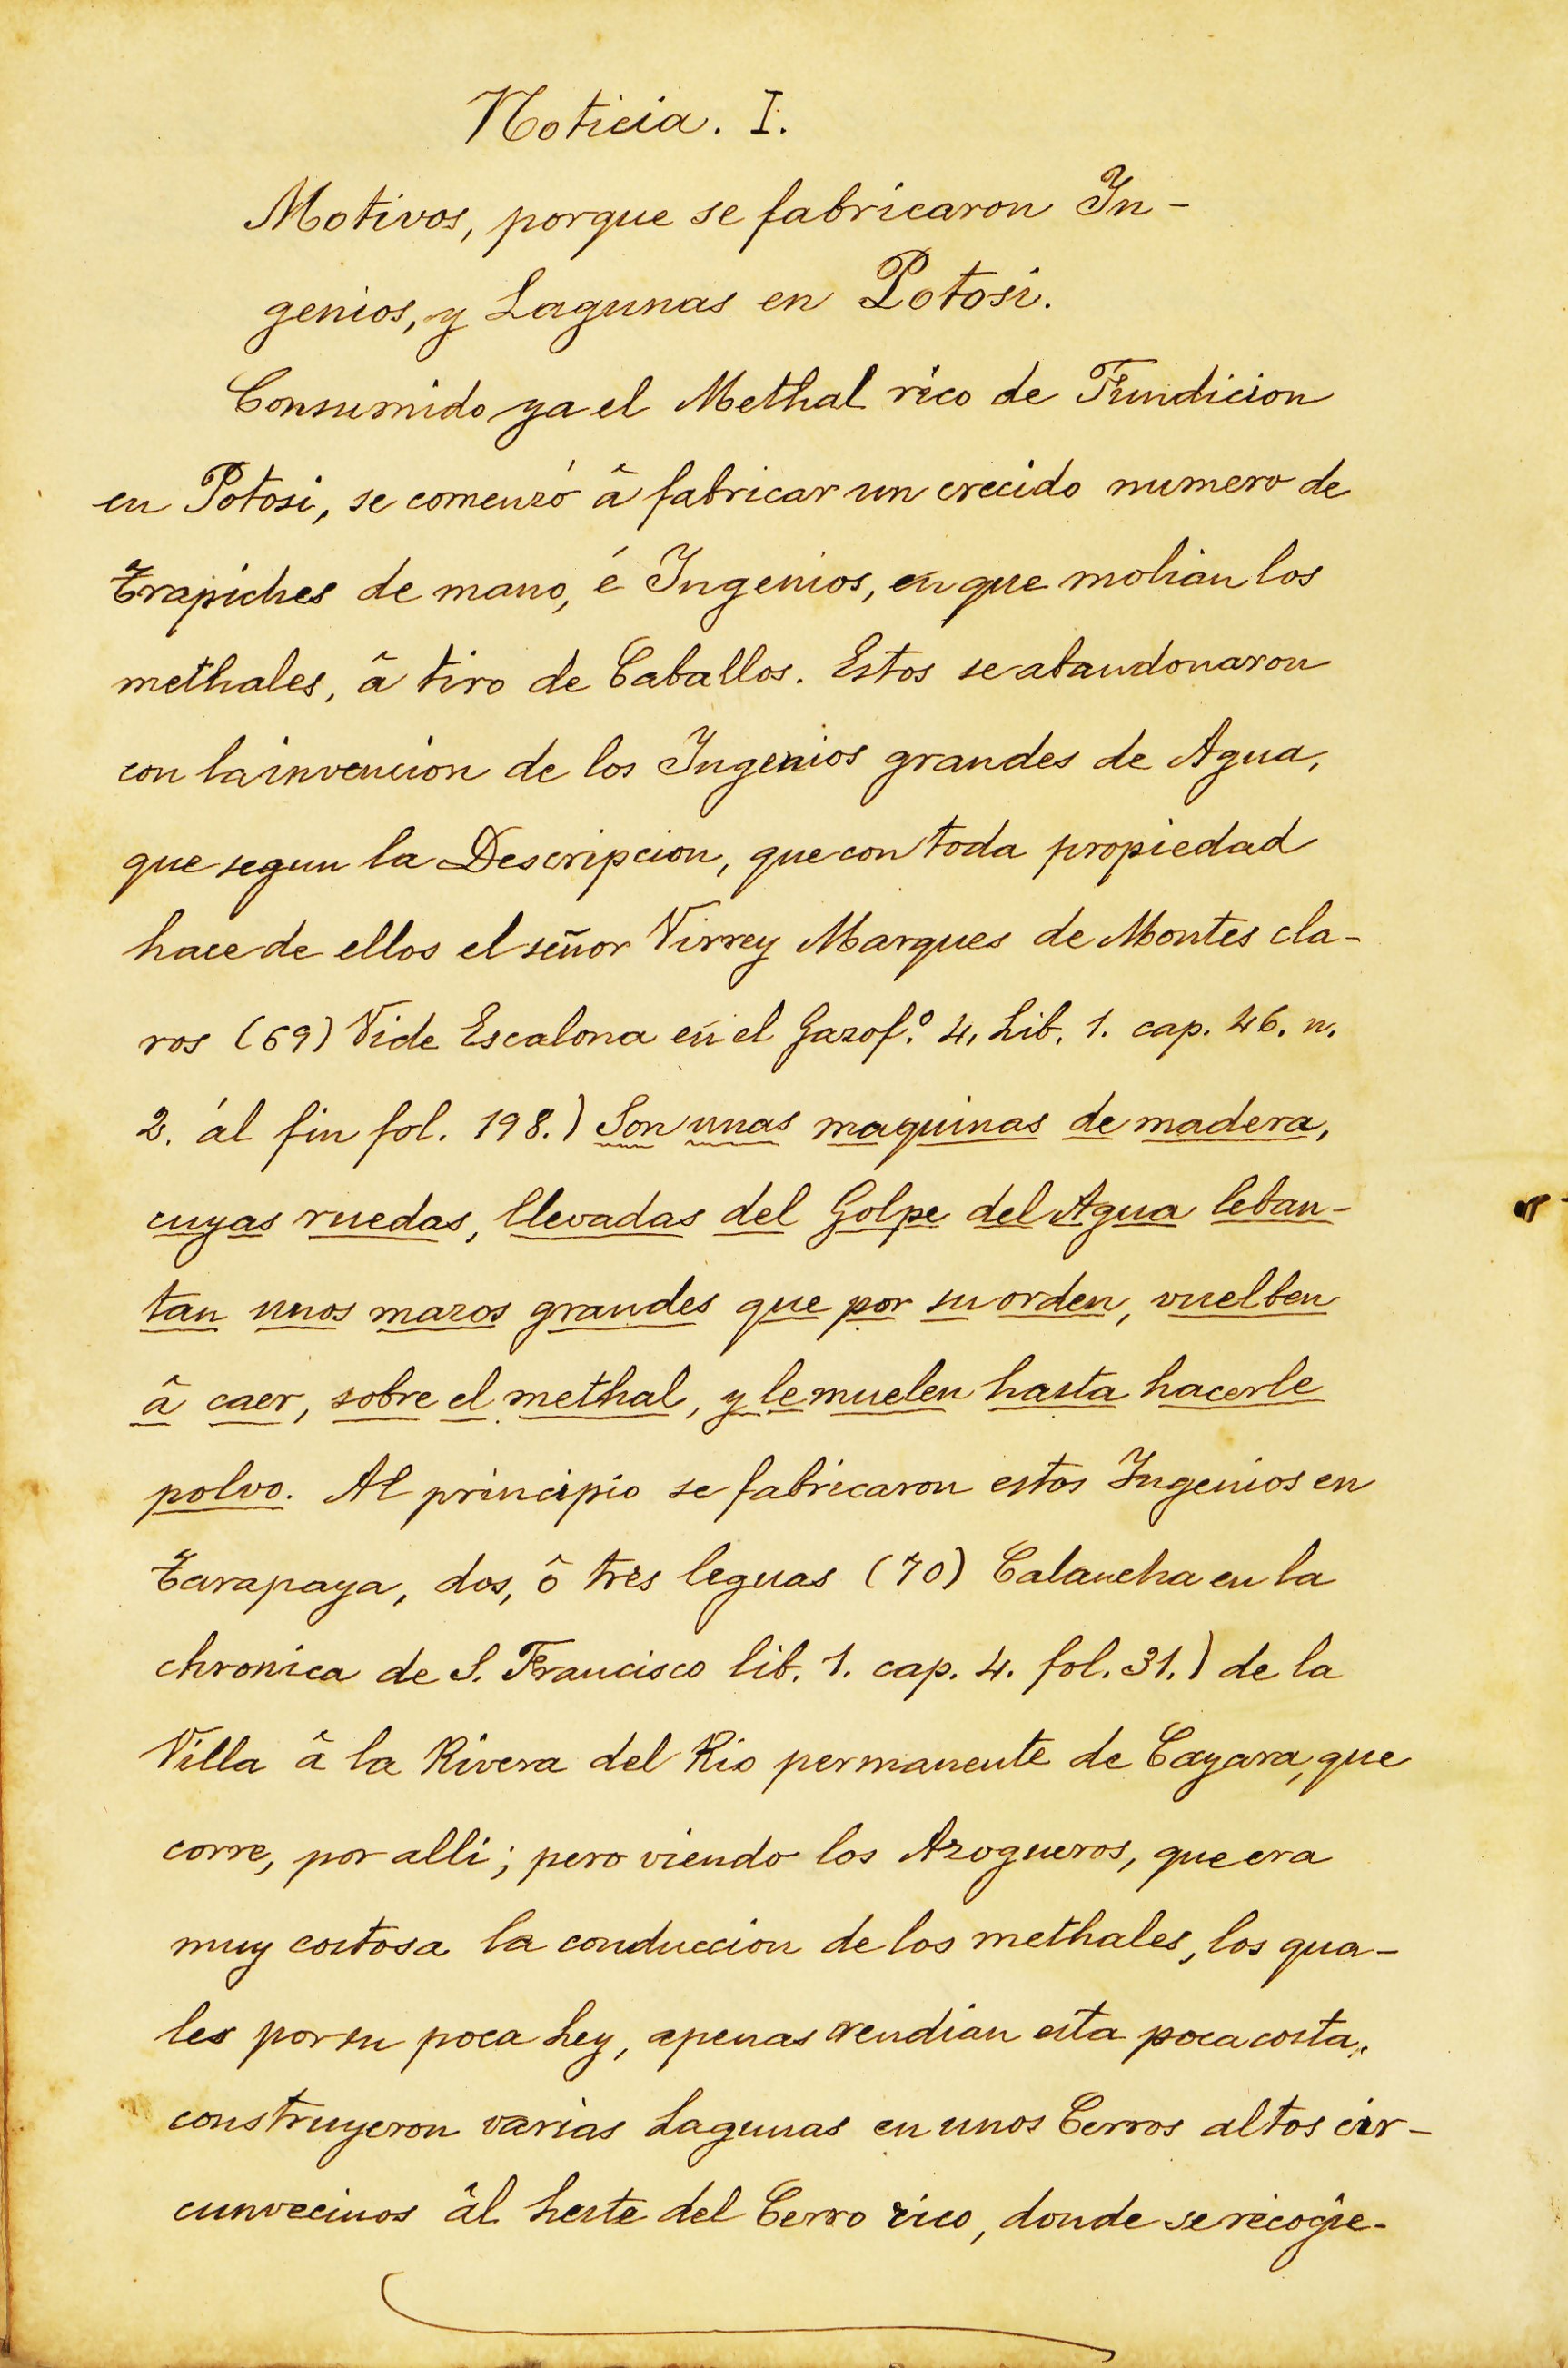 Noticia. I.
Motivos, porque se fabricaron In-
genios, y Lagunas en Potosi.
Consumido ya el Methal rico de Fundicion
en Potosi, se comenzó â fabricar un crecido numero de
Trapiches de mano, é Ingenios, en que molian los
methales, â tiro de Caballos. Estos se abandonaron
con la invencion de los Ingenios grandes de Agua,
que segun la Descripcion, que con toda propiedad
hace de ellos el señor Virrey Marques de Montes cla-
ros (69) Vide Escalona en el Gazof.º 4, Lib. 1. cap. 46. n.
2. ál fin fol. 198.) Son unas maquinas de madera,
cuyas ruedas, llevadas del Golpe del Agua leban-
tan unos mazos grandes que por su orden, vuelben
â caer, sobre el methal, y le muelen hasta hacerle
polvo. Al principio se fabricaron estos Ingenios en
Tarapaya, dos, ô tres leguas (70) Calancha en la
chronica de S. Francisco lib. 1. cap. 4. fol. 31.) de la
Villa â la Rivera del Rio permanente de Cayara, que
corre, por alli; pero viendo los Azogueros, que era
muy costosa la conduccion de los methales, los qua-
les por su poca Ley, apenas rendian esta poca costa.
construyeron varias Lagunas en unos Cerros altos cir-
cunvecinos âl Leste del Cerro rico, donde se recogie-